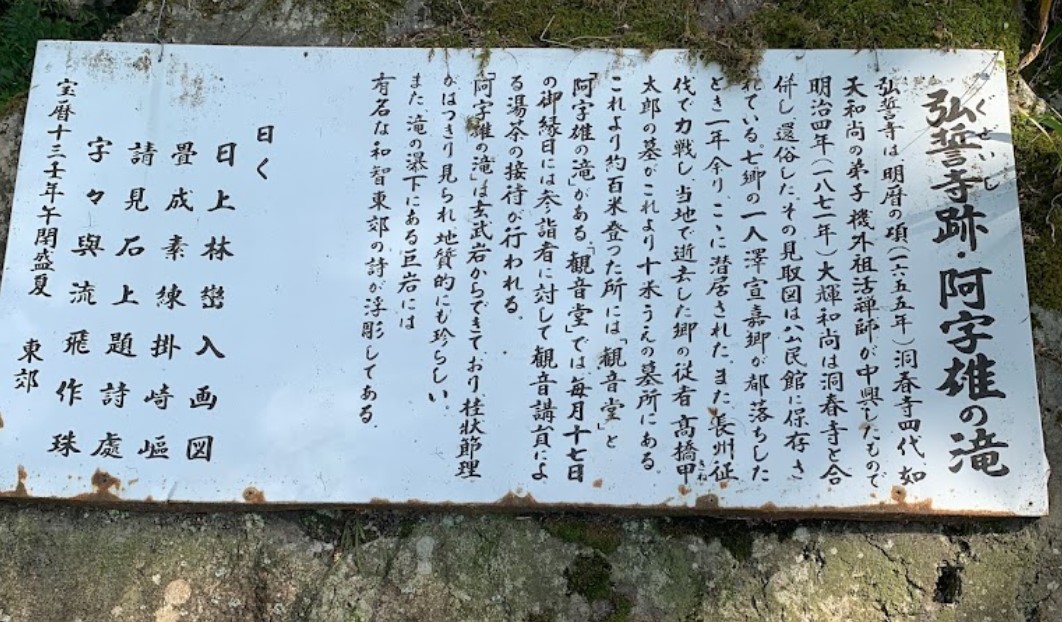 弘誓寺跡・阿字雄の滝
ぐぜいじ
弘誓寺は明暦の頃(一六五五年)洞春寺四代、如
天和尚の弟子機外祖活禅師が中興したもので
明治四年(一八七一年)大輝和尚は洞春寺と合
併し還俗した。その見取図は公民館に保存さ
れている。七卿の一人澤宣嘉卿が都落ちした
とき一年余り、ここに潜居された。また、長州征
伐で力戦し、当地で逝去した郷の従者高橋甲
太郎の墓がこれより十米うえの墓所にある。
これより約百米登った所には「観音堂」と
「阿字雄の滝」がある。「観音堂」では毎月十七日
の御縁日には参詣者に対して観音講員によ
る湯茶の接待が行われる。
「阿字雄の滝」は玄武岩からできており柱状節理
がはっきり見られ地質的にも珍らしい。
また滝の瀑下にある巨岩には
有名な和智東郊の詩が浮彫してある。
曰く
日上林巒入画図
畳成素練掛崎嶇
請見石上題詩處
字々與流飛作珠
宝暦十三壬年午閏盛夏
東郊